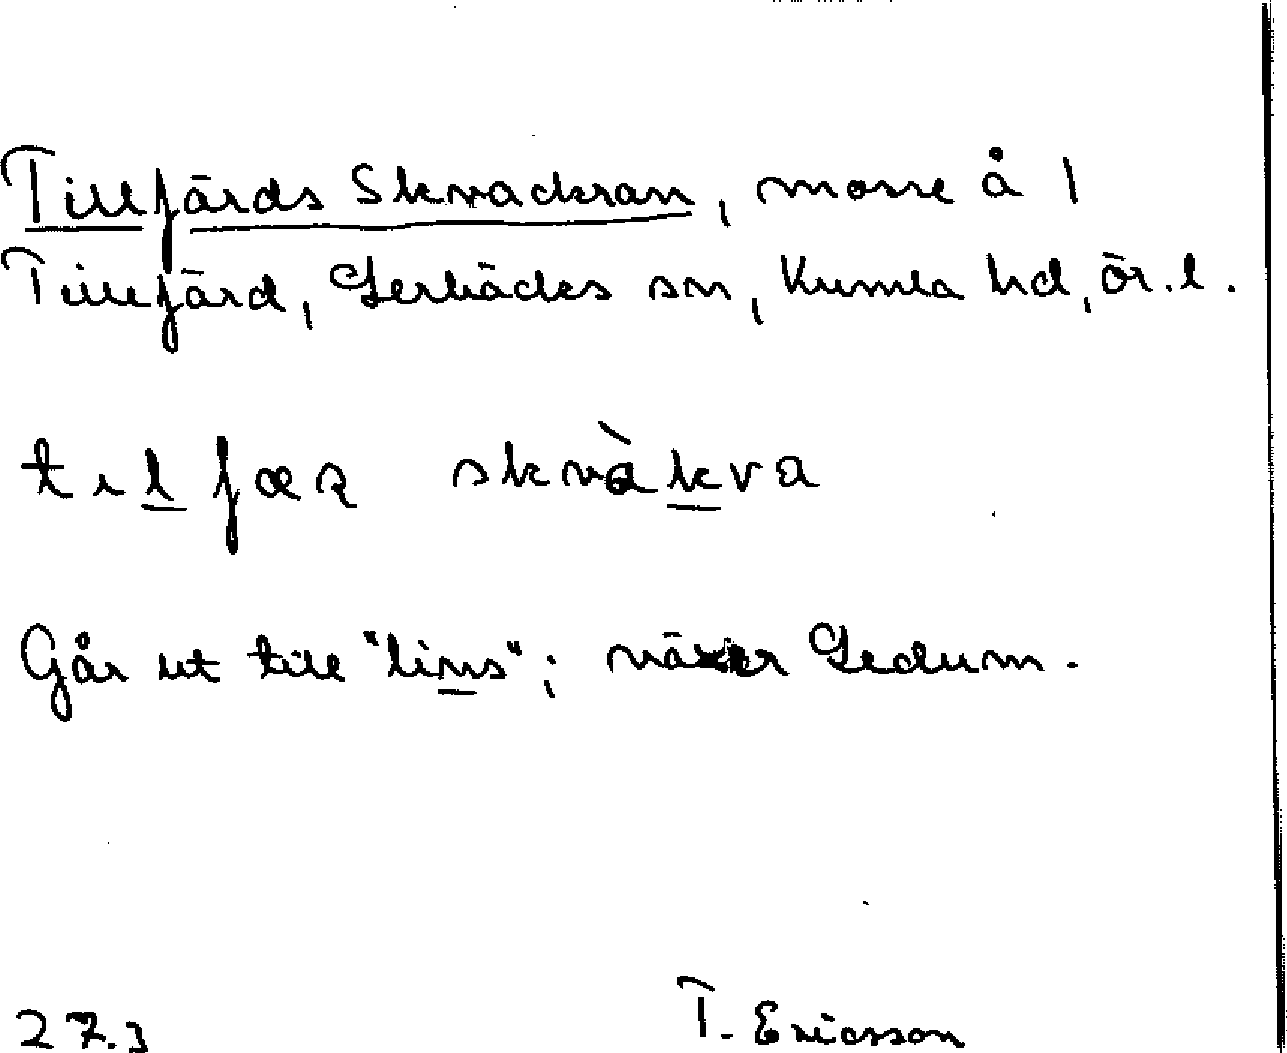 Tillfärds Skvackran, mosse å 1
Tillfärd, Lerbäcks sn, Kumla hd, ör. l.
tɩlfæꝛ skvàkva
Går ut till "lins"; växer Ledum.
27.3 T. Ericsson